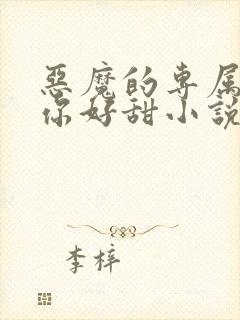 惡魔的專属
你好甜小説
李梓